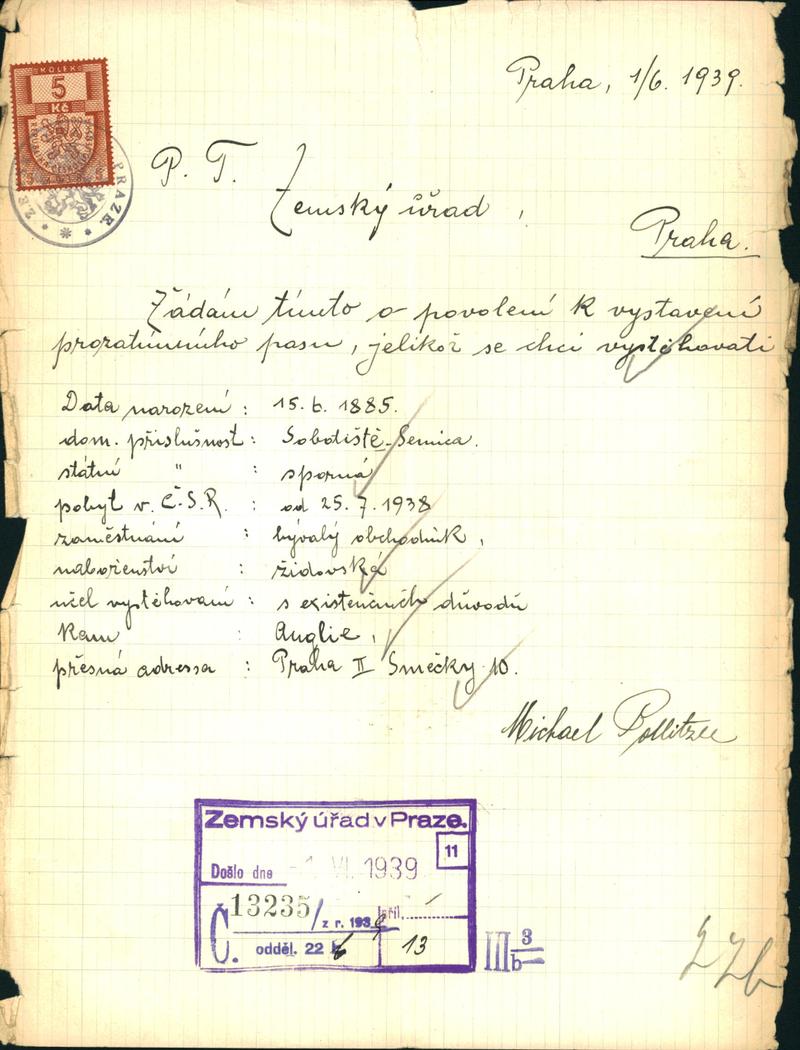 KOLEK
5
Kč
PRAZE
Praha, 1/6. 1939.
P. T.
Zemský úřad,
Praha.
Žádám tímto o povolení k vystavení
prozatímního pasu, jelikož se chci vystěhovati
Data narození : 15. 6. 1885.
dom. příslušnost : Sobotiště-Senica.
státní " : sporná
pobyt v Č.S.R. : od 25. 7. 1938
zaměstnání : bývalý obchodník,
náboženství : židovská
účel vystěhovaní : s existenčních důvodů
Kam : Anglie,
přesná adressa : Praha II Smečky 10.
Michael Pollitzer
Zemský úřad v Praze.
11
Došlo dne -1. VI. 1939
Č. 13235/z r. 1939 příl.
odděl. 22 b 13
III 3/b
22b